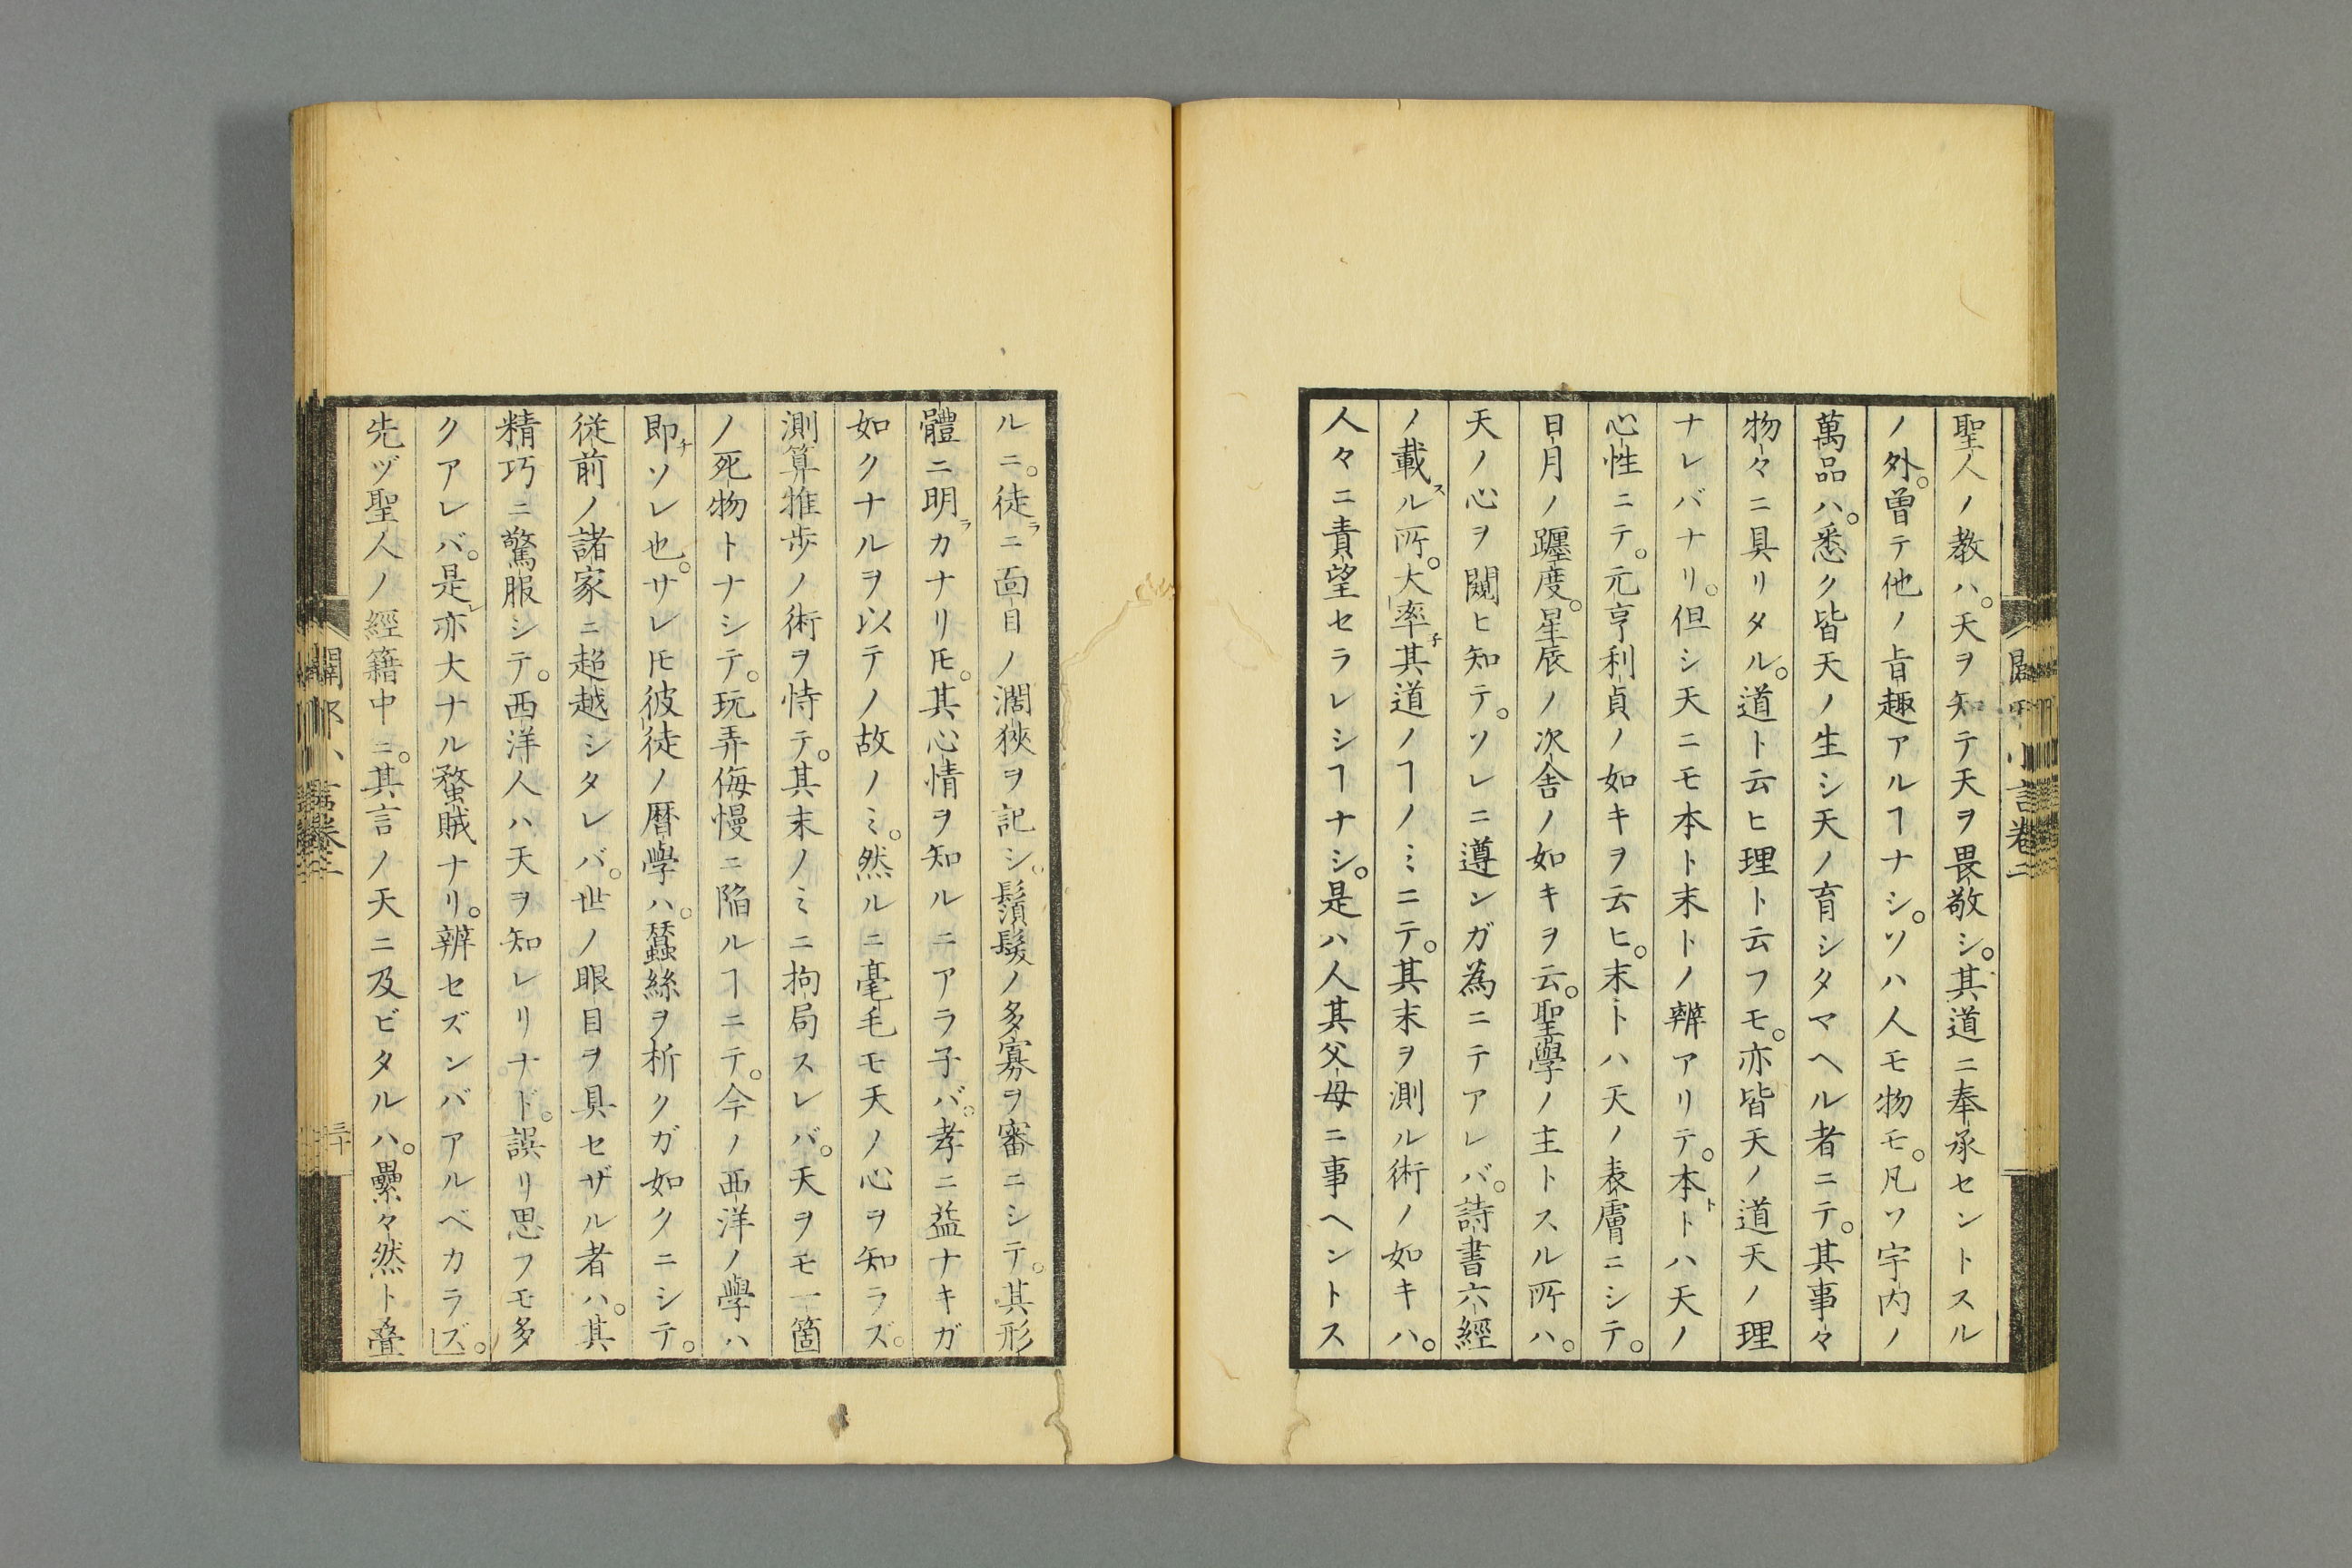 聖人ノ教ハ。天ヲ知テ天ヲ畏敬シ。其道ニ奉承セントスル
ノ外。曽テ他ノ旨趣アルヿナシ。ソハ人モ物モ。凡ソ宇内ノ
萬品ハ。悉ク皆天ノ生シ天ノ育シタマヘル者ニテ。其事々
物々ニ具リタル。道ト云ヒ理ト云フモ。亦皆天ノ道天ノ理
ナレバナリ。但シ天ニモ本ト末トノ辨アリテ。本トトハ天ノ
心性ニテ。元亨利貞ノ如キヲ云ヒ。末トハ天ノ表膚ニシテ。
日月ノ躔度。星辰ノ次舎ノ如キヲ云。聖學ノ主トスル所ハ。
天ノ心ヲ閲ヒ知テ。ソレニ遵ンガ為ニテアレバ。詩書六經
ノ載スル所。大率チ其道ノヿノミニテ。其末ヲ測ル術ノ如キハ。
人々ニ責望セラレシヿナシ。是ハ人其父母ニ事ヘントス
ルニ。徒ラニ面目ノ濶狹ヲ記シ。鬚髮ノ多寡ヲ審ニシテ。其形
體ニ明ラカナリ𪜈。其心情ヲ知ルニアラ子バ。孝ニ益ナキガ
如クナルヲ以テノ故ノミ。然ルニ毫毛モ天ノ心ヲ知ラズ。
測算推歩ノ術ヲ恃テ。其末ノミニ拘局スレバ。天ヲモ一箇
ノ死物トナシテ。玩弄侮慢ニ陥ルヿニテ。今ノ西洋ノ學ハ
即チソレ也。サレ𪜈彼徒ノ暦學ハ。蠶絲ヲ析クガ如クニシテ。
従前ノ諸家ニ超越シタレバ。世ノ眼目ヲ具セザル者ハ。其
精巧ニ驚服シテ。西洋人ハ天ヲ知レリナド。誤リ思フモ多
クアレバ。是レ亦大ナル蝥賊ナリ。辨セズンバアルベカラズ。
先ヅ聖人ノ經籍中ニ。其言ノ天ニ及ビタルハ。纍々然ト疊